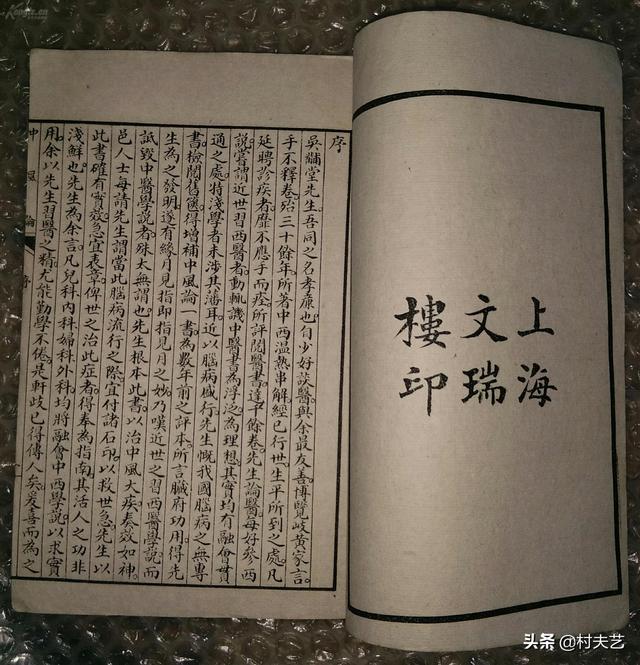 上海
文瑞
樓印
序
吳黼堂先生吾同之名孝廉也自少好談醫與余最友善博覽岐黃家言
手不釋卷殆三十餘年所著中西溫熱串解經已行世生平所到之處凡
延聘診疾者靡不應手而痊所評閱醫書達千餘卷先生論醫每好參西
說嘗謂近世習西醫者動輒譏中醫書為浮泛為理想其實均有融會貫
通之處特淺學者未涉其藩耳近以腦病盛行先生慨我國腦病之無專
書檢閱舊篋得增補中風論一書為數年前之評本所言臟腑功用得先
生為之發明遂有緣月見指即指見月之妙乃嘆近世之習西醫學說而
詆毀中醫學說者殊太無謂也先生根本此書以治中風大疾奏效如神
邑人士每請先生謂當此腦病流行之際宜付諸石印以救世急先生以
此書確有實效急宜表章俾世之治此症者得奉為指南其活人之功非
淺鮮也先生為余言凡兒科內科婦科外科均將融會中西學說以求實
用余以先生習醫之精尤能勤學不倦是軒歧已得傳人矣爰喜而為之
中風論 序
Kongfz.cn
头条 @村夫艺